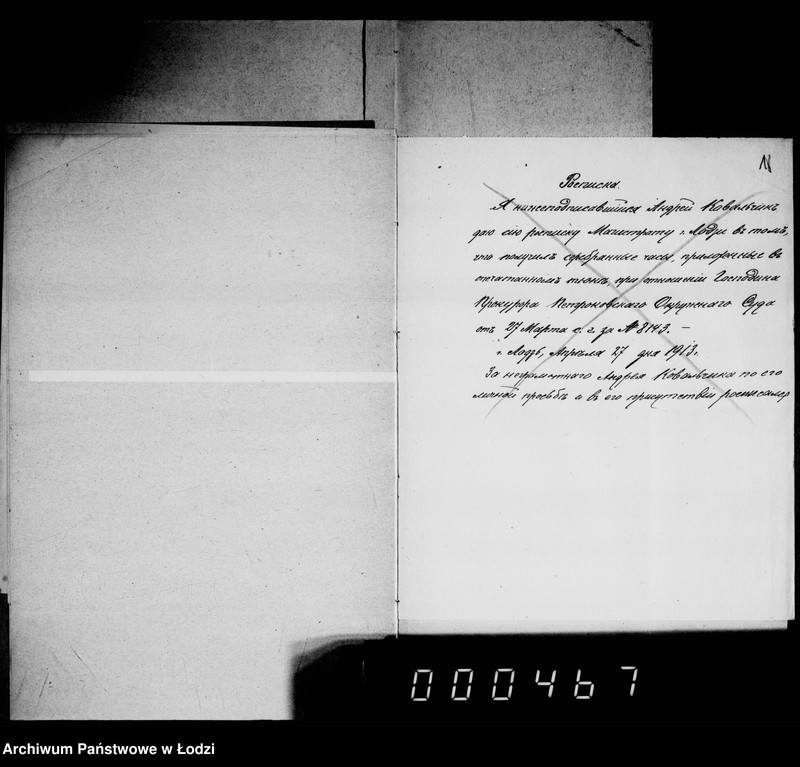 Росписка.
Я нижеподписавшійся Андрей Ковальчик
даю сію росписку Магистрату г. Лодзи въ томъ,
что получилъ серебранные часы, приложенные въ
опечатанномъ пакетѣ при отношеніи Господина
Прокурора Петроковскаго Окружнаго Суда
отъ 27 Марта с. г. за № 8143. —
г. Лодзь, Апрѣля 27 дня 1913 г.
За неграмотнаго Андрея Ковальчика по его
личной просьбѣ и въ его присутствіи росписался
000467
Archiwum Państwowe w Łodzi